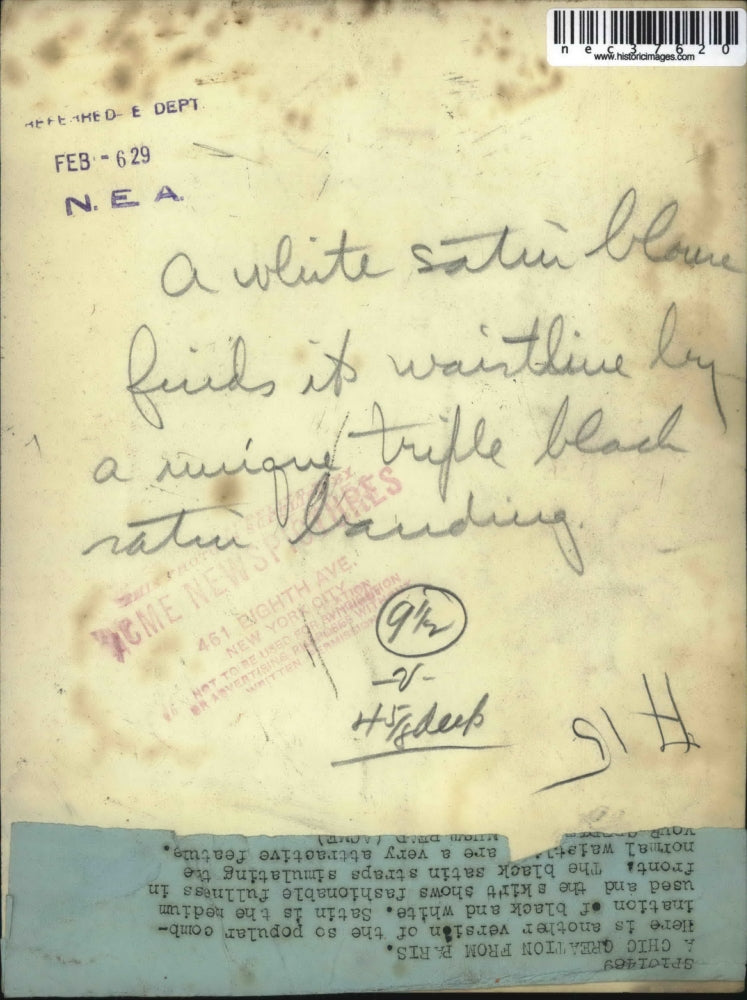 nec37620
www.historicimages.com
REFERRED E DEPT.
FEB - 6 29
N. E. A.
a white satin blouse
finds its waistline by
a unique triple black
satin banding.
ACME NEWSPICTURES
461 EIGHTH AVE.
NEW YORK CITY
NOT TO BE USED FOR
OR ADVERTISING PURPOSES WITHOUT
WRITTEN PERMISSION
9 1/2
-v-
4 5/8 deep
SP101469
A CHIC CREATION FROM PARIS.
Here is another version of the so popular comb-
ination of black and white. Satin is the medium
used and the skirt shows fashionable fullness in
front. The black satin straps simulating the
normal waist are a very attractive featue.
YOUR (ACME)